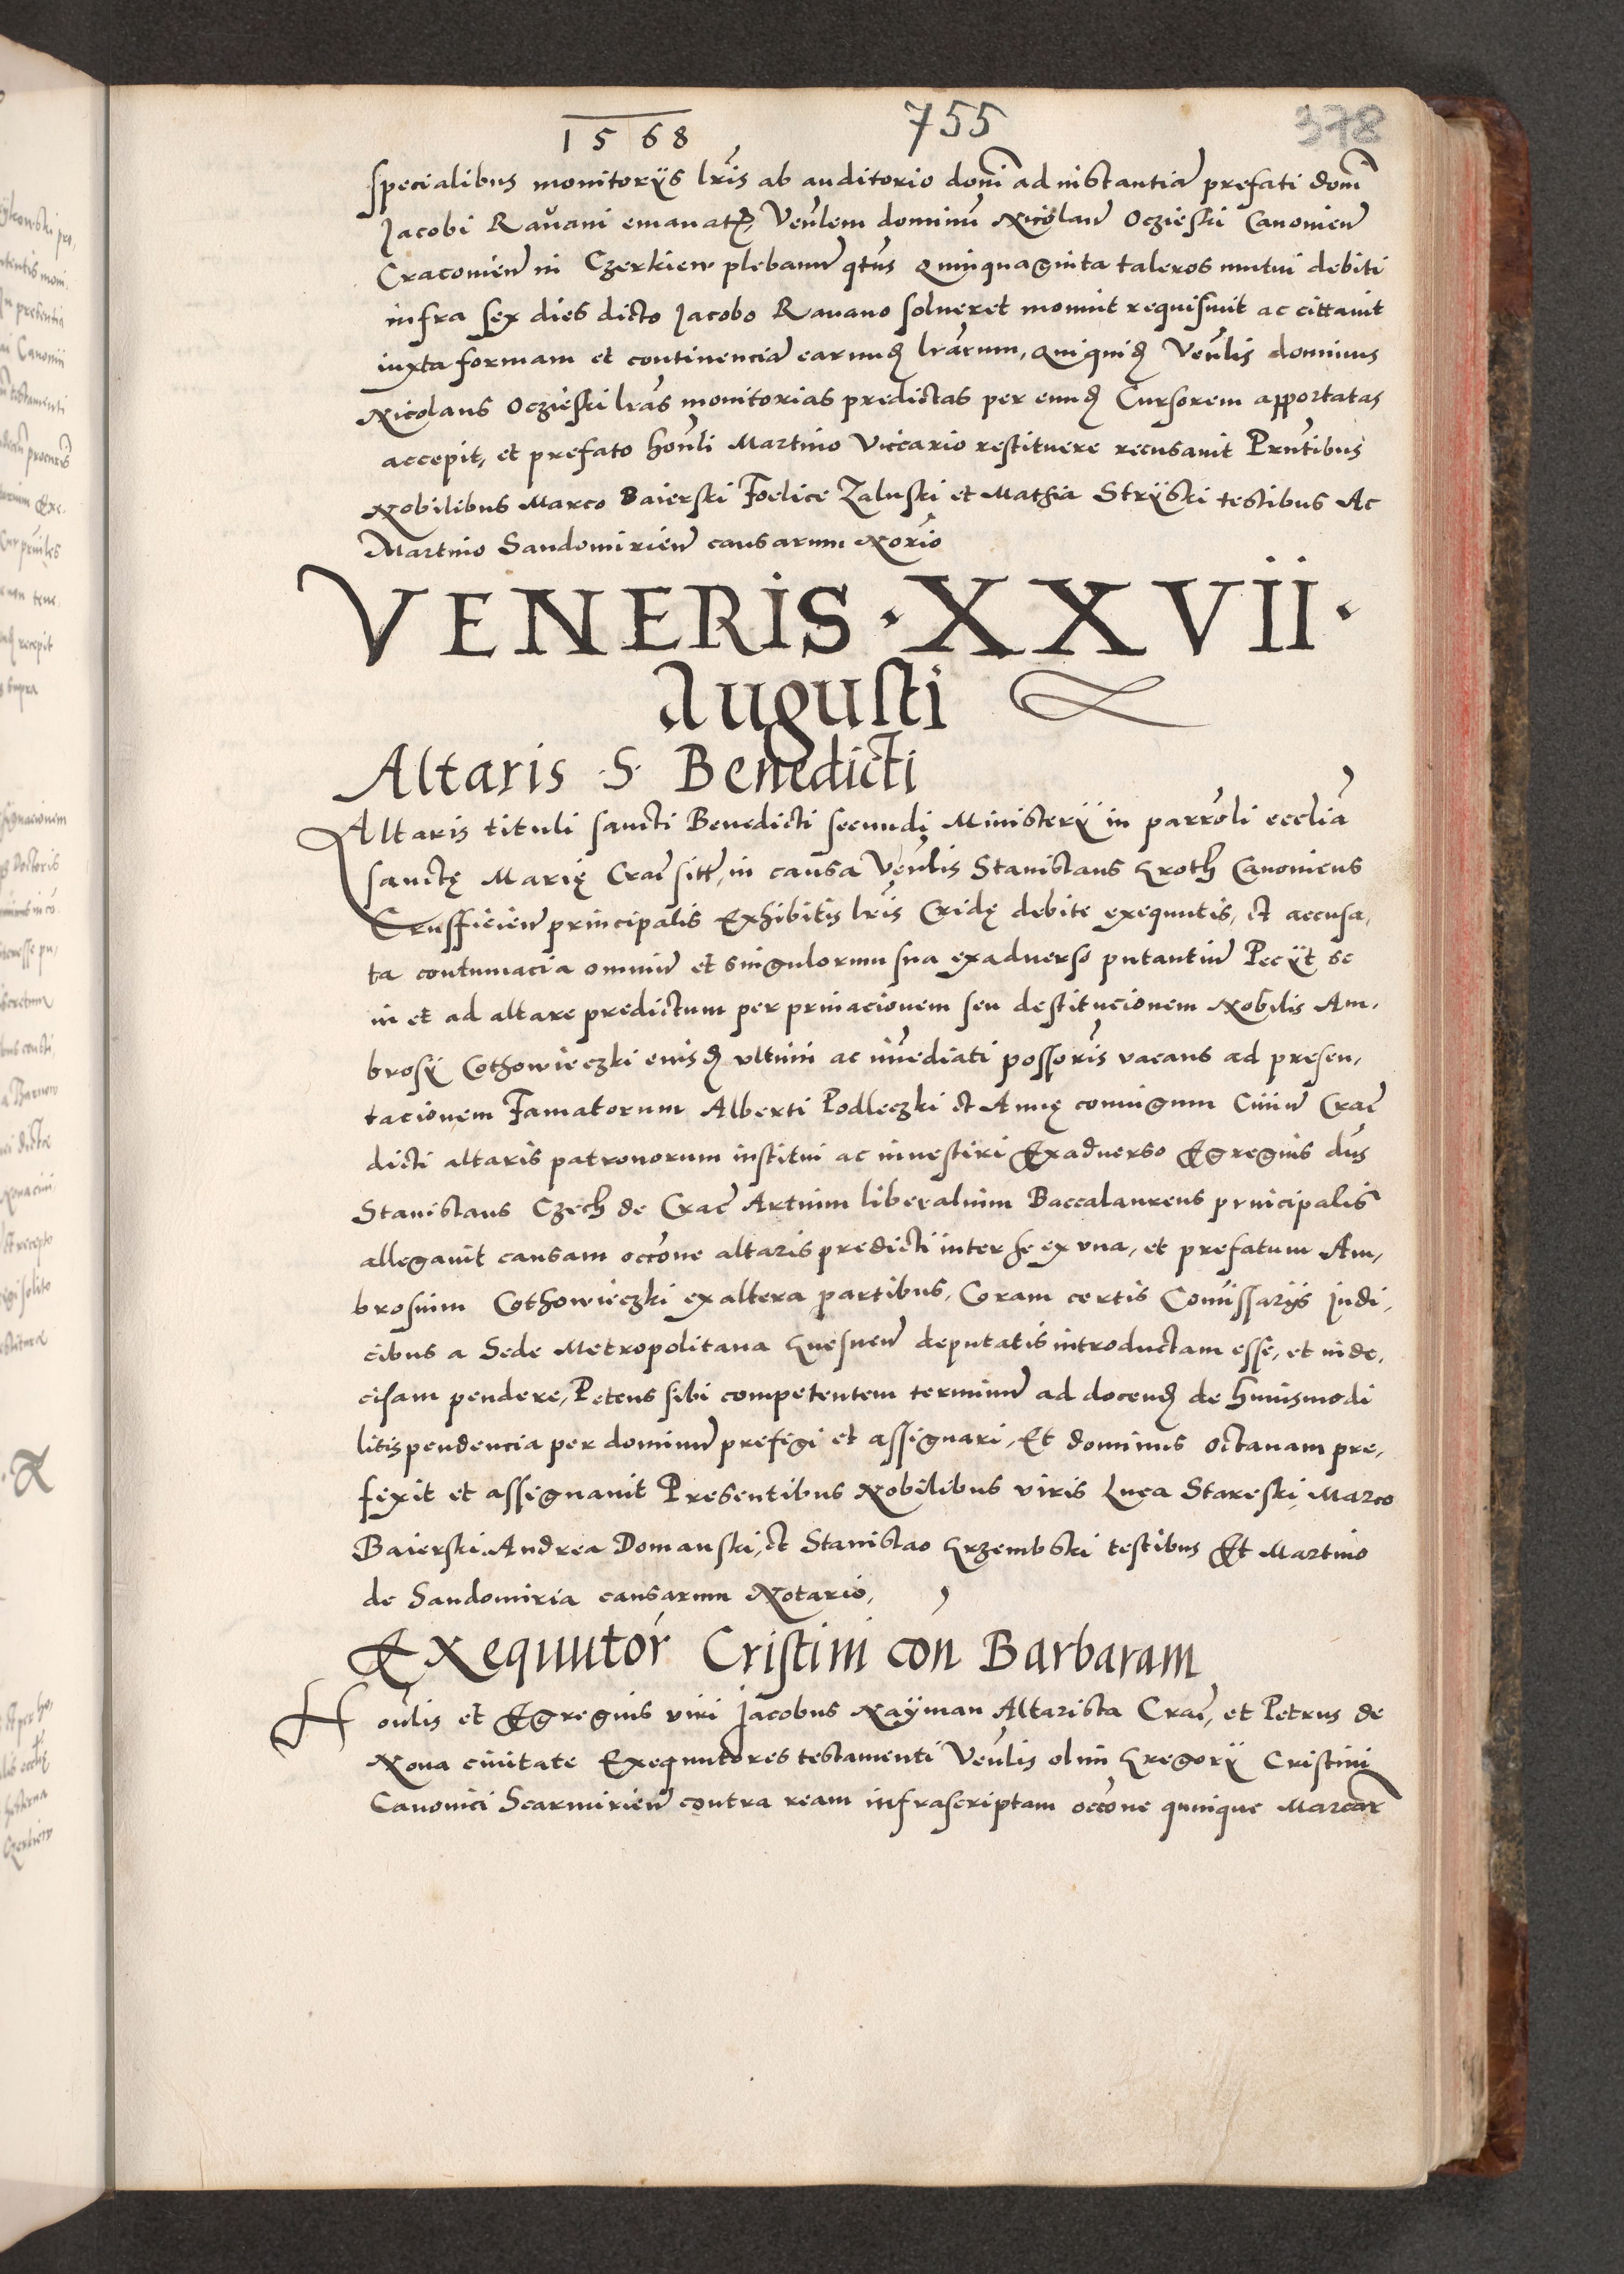 1568 755 378
specialibus monitorÿs lris ab auditorio domi ad instantia prefati domi
Jacobi Ravani emanat, Venlem dominu Nicolau Oczieski Canonicu
Cracovien in Czerkiew plebanu qtus Quinquaginta taleros mutui debiti
infra sex dies dicto Jacobo Ravano solueret monuit requisiuit ac cittauit
iuxta formam et continencia earund lrarum, Quiquid Venlis dominus
Nicolaus Oczieski lras monitorias predictas per eund Cursorem apportatas
accepit, et prefato honli Martino Viccario restituere recusauit Prntibus
Nobilibus Marco Baierski Foelice Zaluski et Mathia Strÿski testibus Ac
Martino Sandomirien causarum Norio
VENERIS · XXVII ·
Augusti
Altaris · S · Benedicti
Altaris tituli sancti Benedicti secundi Ministerÿ in parroli ecclia
sanctę Marię Crac sitt, in causa Venlis Stanislaus Groth Canonicus
Crusfficien principalis Exhibitis lris Cridę debite exequutis, et accusa,
ta contumacia omniu et singulorum sua exaduerso putantiu Peciÿt se
in et ad altare predictum per priuacionem seu destitucionem Nobilis Am,
brosÿ Cothowieczki eiusd vltimi ac imediati possoris vacans ad presen,
tacionem Famatorum Alberti Podleczki et Annę coniugum Ciuiu Crac
dicti altaris patronorum institui ac inuestiri Exaduerso Egregius dns
Stanislaus Czech de Crac Artium liberalium Baccalaureus principalis
allegauit causam occone altaris predicti inter se ex vna, et prefatum Am,
brosium Cothowieczki ex altera partibus, Coram certis Comissarÿs Judi,
cibus a Sede Metropolitana Gnesnen deputatis introductam esse, et inde,
cisam pendere, Petens sibi competentem terminu ad docend de huiusmodi
litispendencia per dominu prefigi et assignari, Et dominus octauam pre,
fexit et assegnauit Presentibus Nobilibus viris Luca Stareski, Marco
Baierski, Andrea Domanski, et Stanislao Grzembski testibus Et Martino
de Sandomiria causarum Notario,
Exequutor Cristini con Barbaram
Honlis et Egregius viri Jacobus Naÿman Altarista Crac, et Petrus de
Noua ciuitate Exequutores testamenti Venlis olim Gregorÿ Cristini
Canonici Scarmirien contra ream infrascriptam occone quinque Marcar